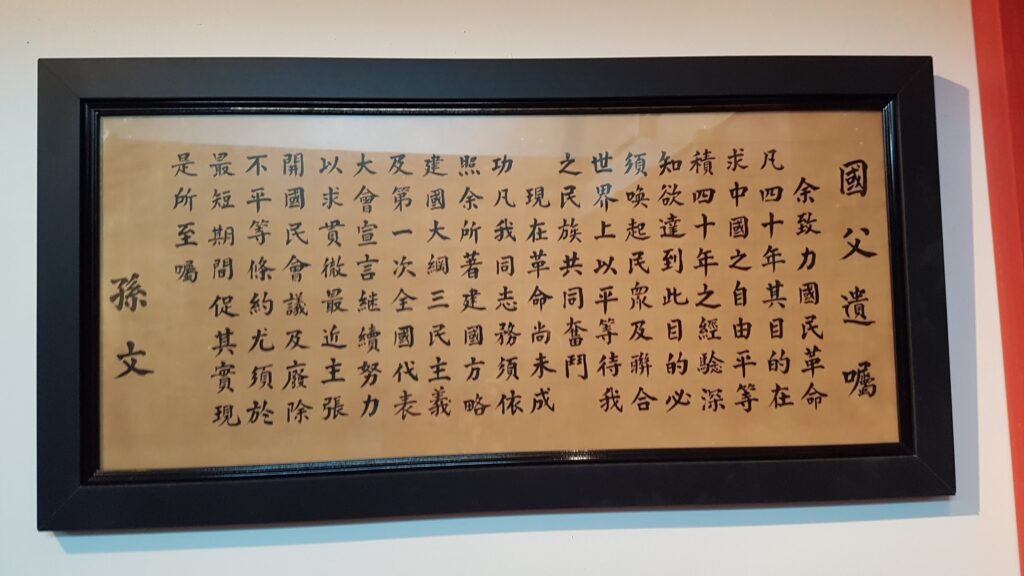 國父遺囑
余致力國民革命
凡四十年其目的在
求中國之自由平等
積四十年之經驗深
知欲達到此目的必
須喚起民衆及聯合
世界上以平等待我
之民族共同奮鬥
現在革命尚未成
功凡我同志務須依
照余所著建國方略
建國大綱三民主義
及第一次全國代表
大會宣言繼續努力
以求貫徹最近主張
開國民會議及廢除
不平等條約尤須於
最短期間促其實現
是所至囑
孫文